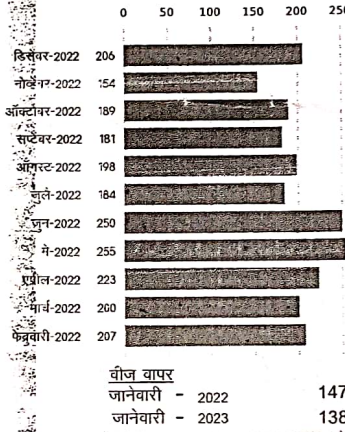 0 50 100 150 200 250
डिसेंबर-2022 206
नोव्हेंबर-2022 154
ऑक्टोबर-2022 189
सप्टेंबर-2022 181
ऑगस्ट-2022 198
जुलै-2022 184
जुन-2022 250
मे-2022 255
एप्रील-2022 223
मार्च-2022 200
फेब्रुवारी-2022 207
वीज वापर
जानेवारी - 2022 147
जानेवारी - 2023 138